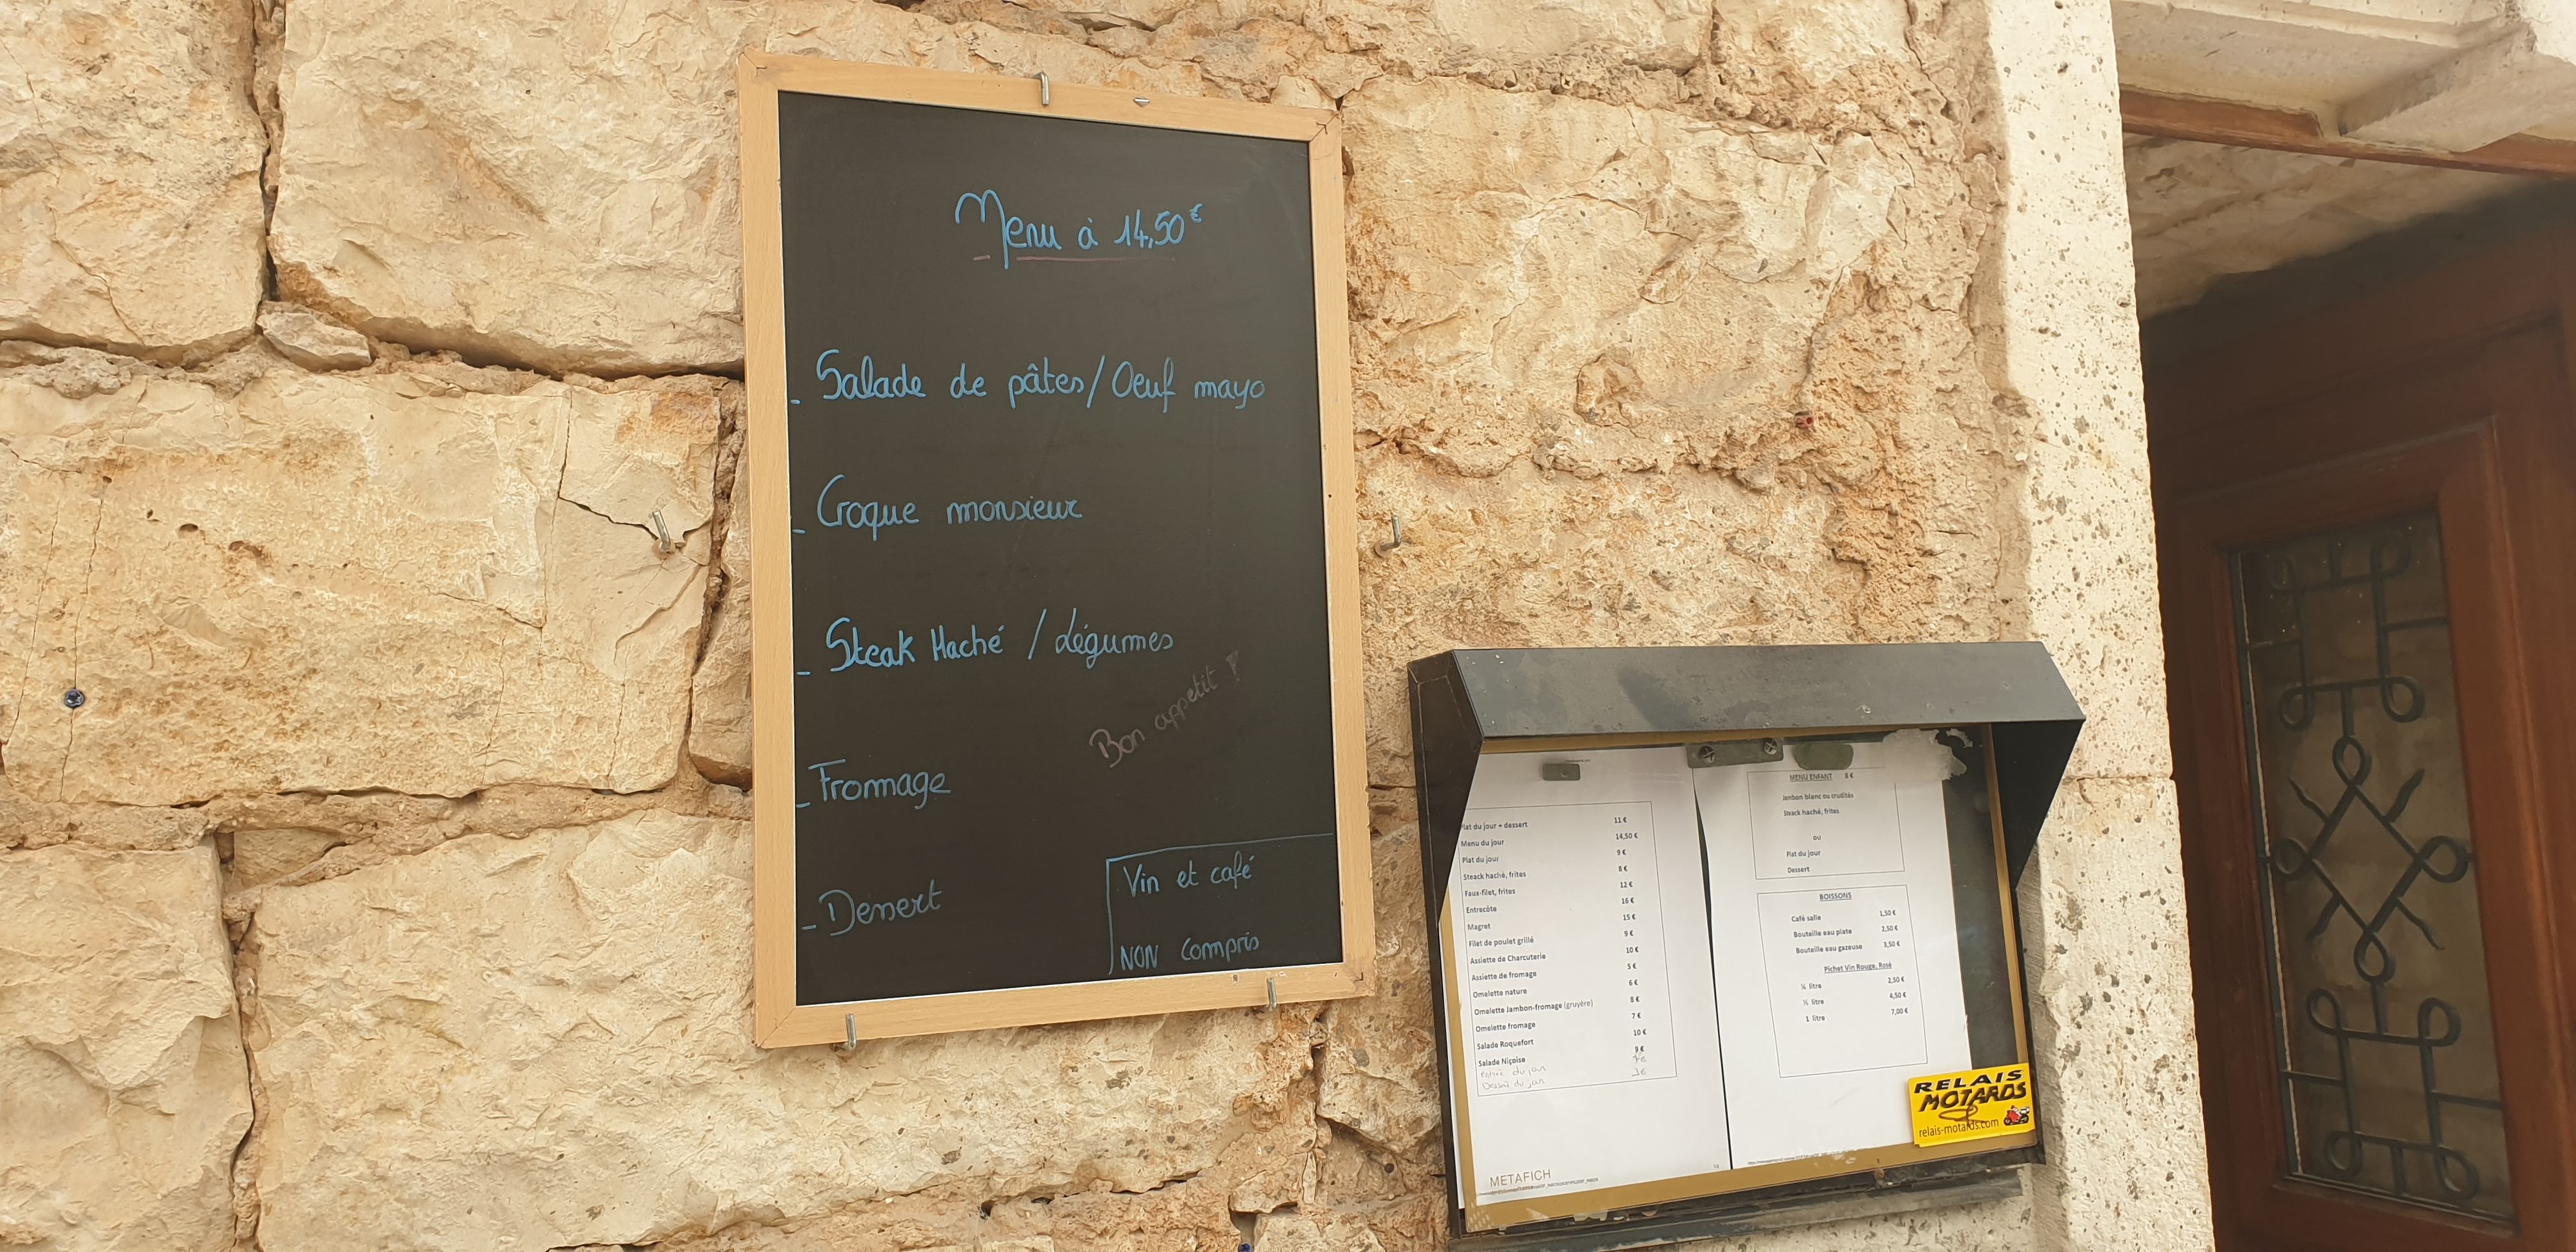 Menu à 14,50€
- Salade de pâtes / Oeuf mayo
- Croque monsieur
- Steak Haché / Légumes
Bon appetit !
- Fromage
- Dessert
Vin et café
NON compris
Plat du jour + dessert 11 €
Menu du jour 14,50 €
Plat du jour 9 €
Steack haché, frites 8 €
Faux-filet, frites 12 €
Entrecôte 16 €
Magret 15 €
Filet de poulet grillé 9 €
Assiette de Charcuterie 10 €
Assiette de fromage 5 €
Omelette nature 6 €
Omelette Jambon-fromage (gruyère) 8 €
Omelette fromage 7 €
Salade Roquefort 10 €
Salade Niçoise 9 €
entrée du jour
Dessert du jour 3€
METAFICH
MENU ENFANT 8 €
Jambon blanc ou crudités
Steack haché, frites
ou
Plat du jour
Dessert
BOISSONS
Café salle 1,50 €
Bouteille eau plate 2,50 €
Bouteille eau gazeuse 3,50 €
Pichet Vin Rouge, Rosé
¼ litre 2,50 €
½ litre 4,50 €
1 litre 7,00 €
RELAIS
MOTARDS
relais-motards.com